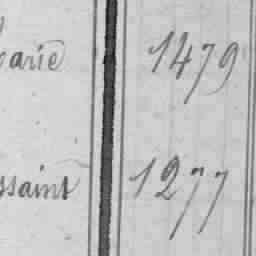 arie 1479
ssaint 1277